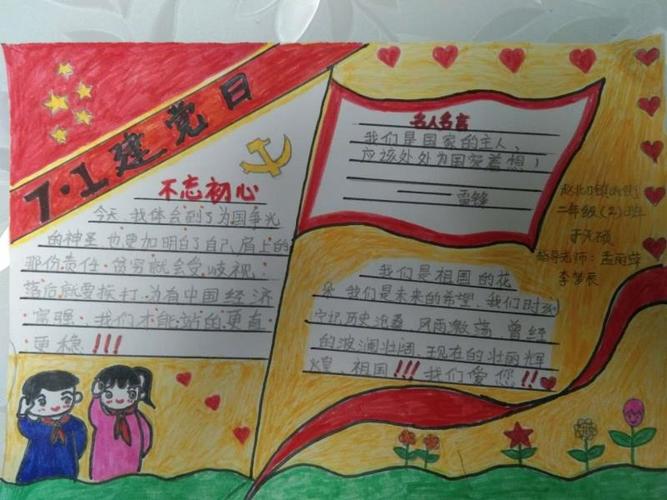 7·1建党日
不忘初心
今天,我体会到了为国争光
的神圣,也更加明白了自己肩上的
那份责任.贫穷就会受歧视,
落后就要挨打.为有中国经济
富强,我们才能站的更直
更稳!!!
名人名言
我们是国家的主人,
应该处处为国家着想!
——雷锋
我们是祖国的花
朵,我们是未来的希望,我们时刻
守记历史沧桑,风雨激荡,曾经
的波澜壮阔,现在的壮丽辉
煌,祖国!!!我们爱您!!
赵北口镇
二年级(2)班
指导老师:孟雨萍
李梦辰